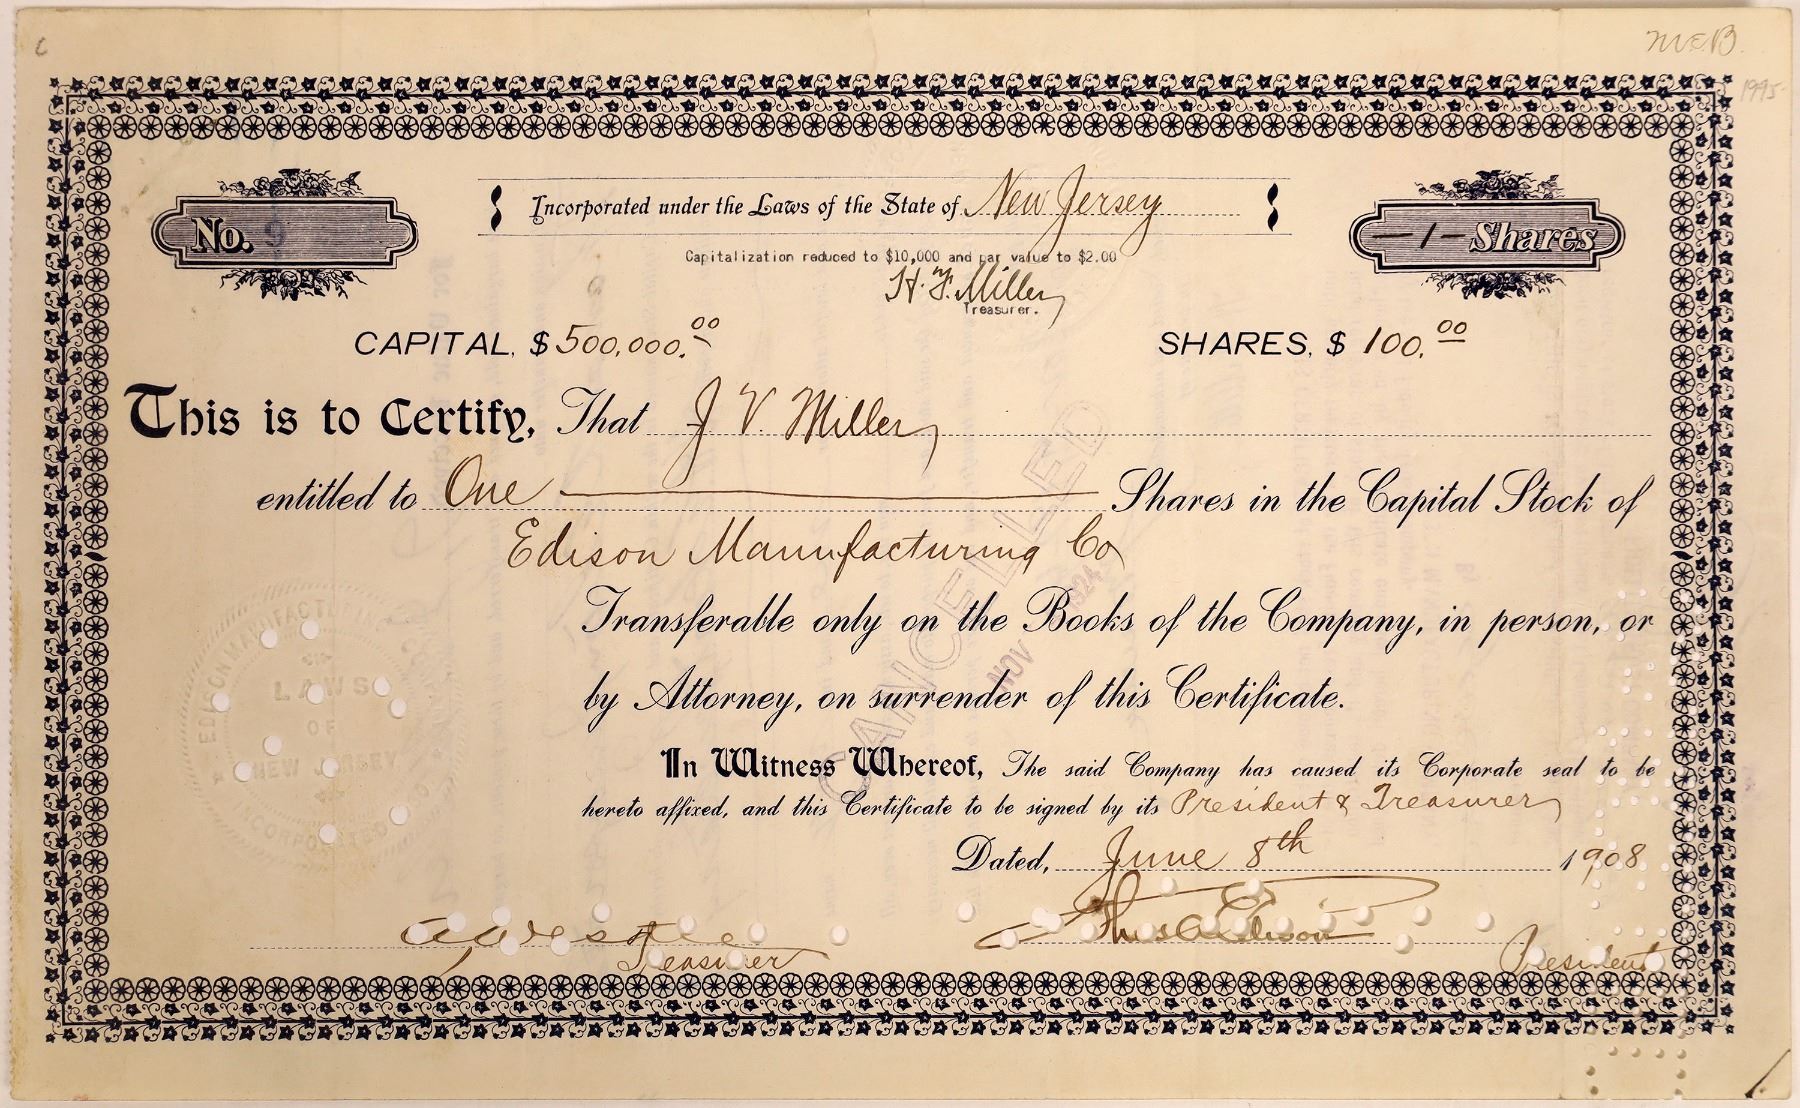 c
McB.
1995
Incorporated under the Laws of the State of New Jersey
No. 9
-1- Shares
Capitalization reduced to $10,000 and par value to $2.00
H. F. Miller
Treasurer.
CAPITAL, $500,000.00 SHARES, $ 100.00
This is to Certify, That J V. Miller
entitled to One Shares in the Capital Stock of
Edison Manufacturing Co
Transferable only on the Books of the Company, in person, or
by Attorney, on surrender of this Certificate.
CANCELLED
NOV 1924
EDISON MANUFACTURING
LAWS
OF
NEW JERSEY
INCORPORATED
In Witness Whereof, The said Company has caused its Corporate seal to be
hereto affixed, and this Certificate to be signed by its President & Treasurer
Dated, June 8th 1908
Thos A Edison
Treasurer President